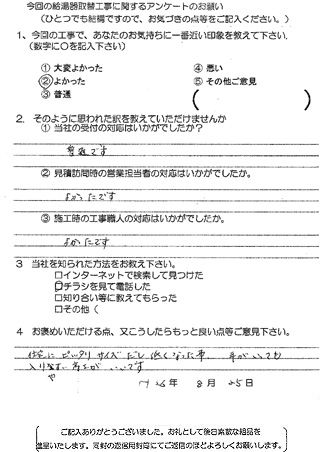 今回の給湯器取替工事に関するアンケートのお願い
(ひとつでも結構ですので、お気づきの点等をご記入ください。)
1、今回の工事で、あなたのお気持ちに一番近い印象を教えて下さい。
(数字に○を記入下さい)
① 大変よかった ④ 悪い
② よかった ⑤ その他ご意見
③ 普通 ( )
2. そのように思われた訳を教えていただけませんか
① 当社の受付の対応はいかがでしたか?
普通です
② 見積訪問時の営業担当者の対応はいかがでしたか。
よかったです
③ 施工時の工事職人の対応はいかがでしたか。
よかったです
3 当社を知られた方法をお教え下さい。
□インターネットで検索して見つけた
□チラシを見て電話した
□知り合い等に教えてもらった
□その他(
4 お褒めいただける点、又こうしたらもっと良い点等ご意見下さい。
ピッタリ サイズ だし 低くなった事
入りやすい いいです
26年 8月 25日
ご記入ありがとうございました。お礼として後日素敵な粗品を
進呈いたします。同封の返信用封筒にてご返信のほどよろしくお願いします。